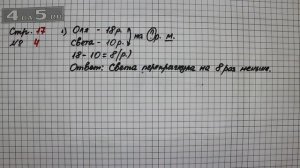 4 5
Стр. 17 1) Оля - 18р.
№ 4 Света - 10р. на ?р. м.
18 - 10 = 8 (р.)
Ответ: Света перепрыгнула на 8 раз меньше.